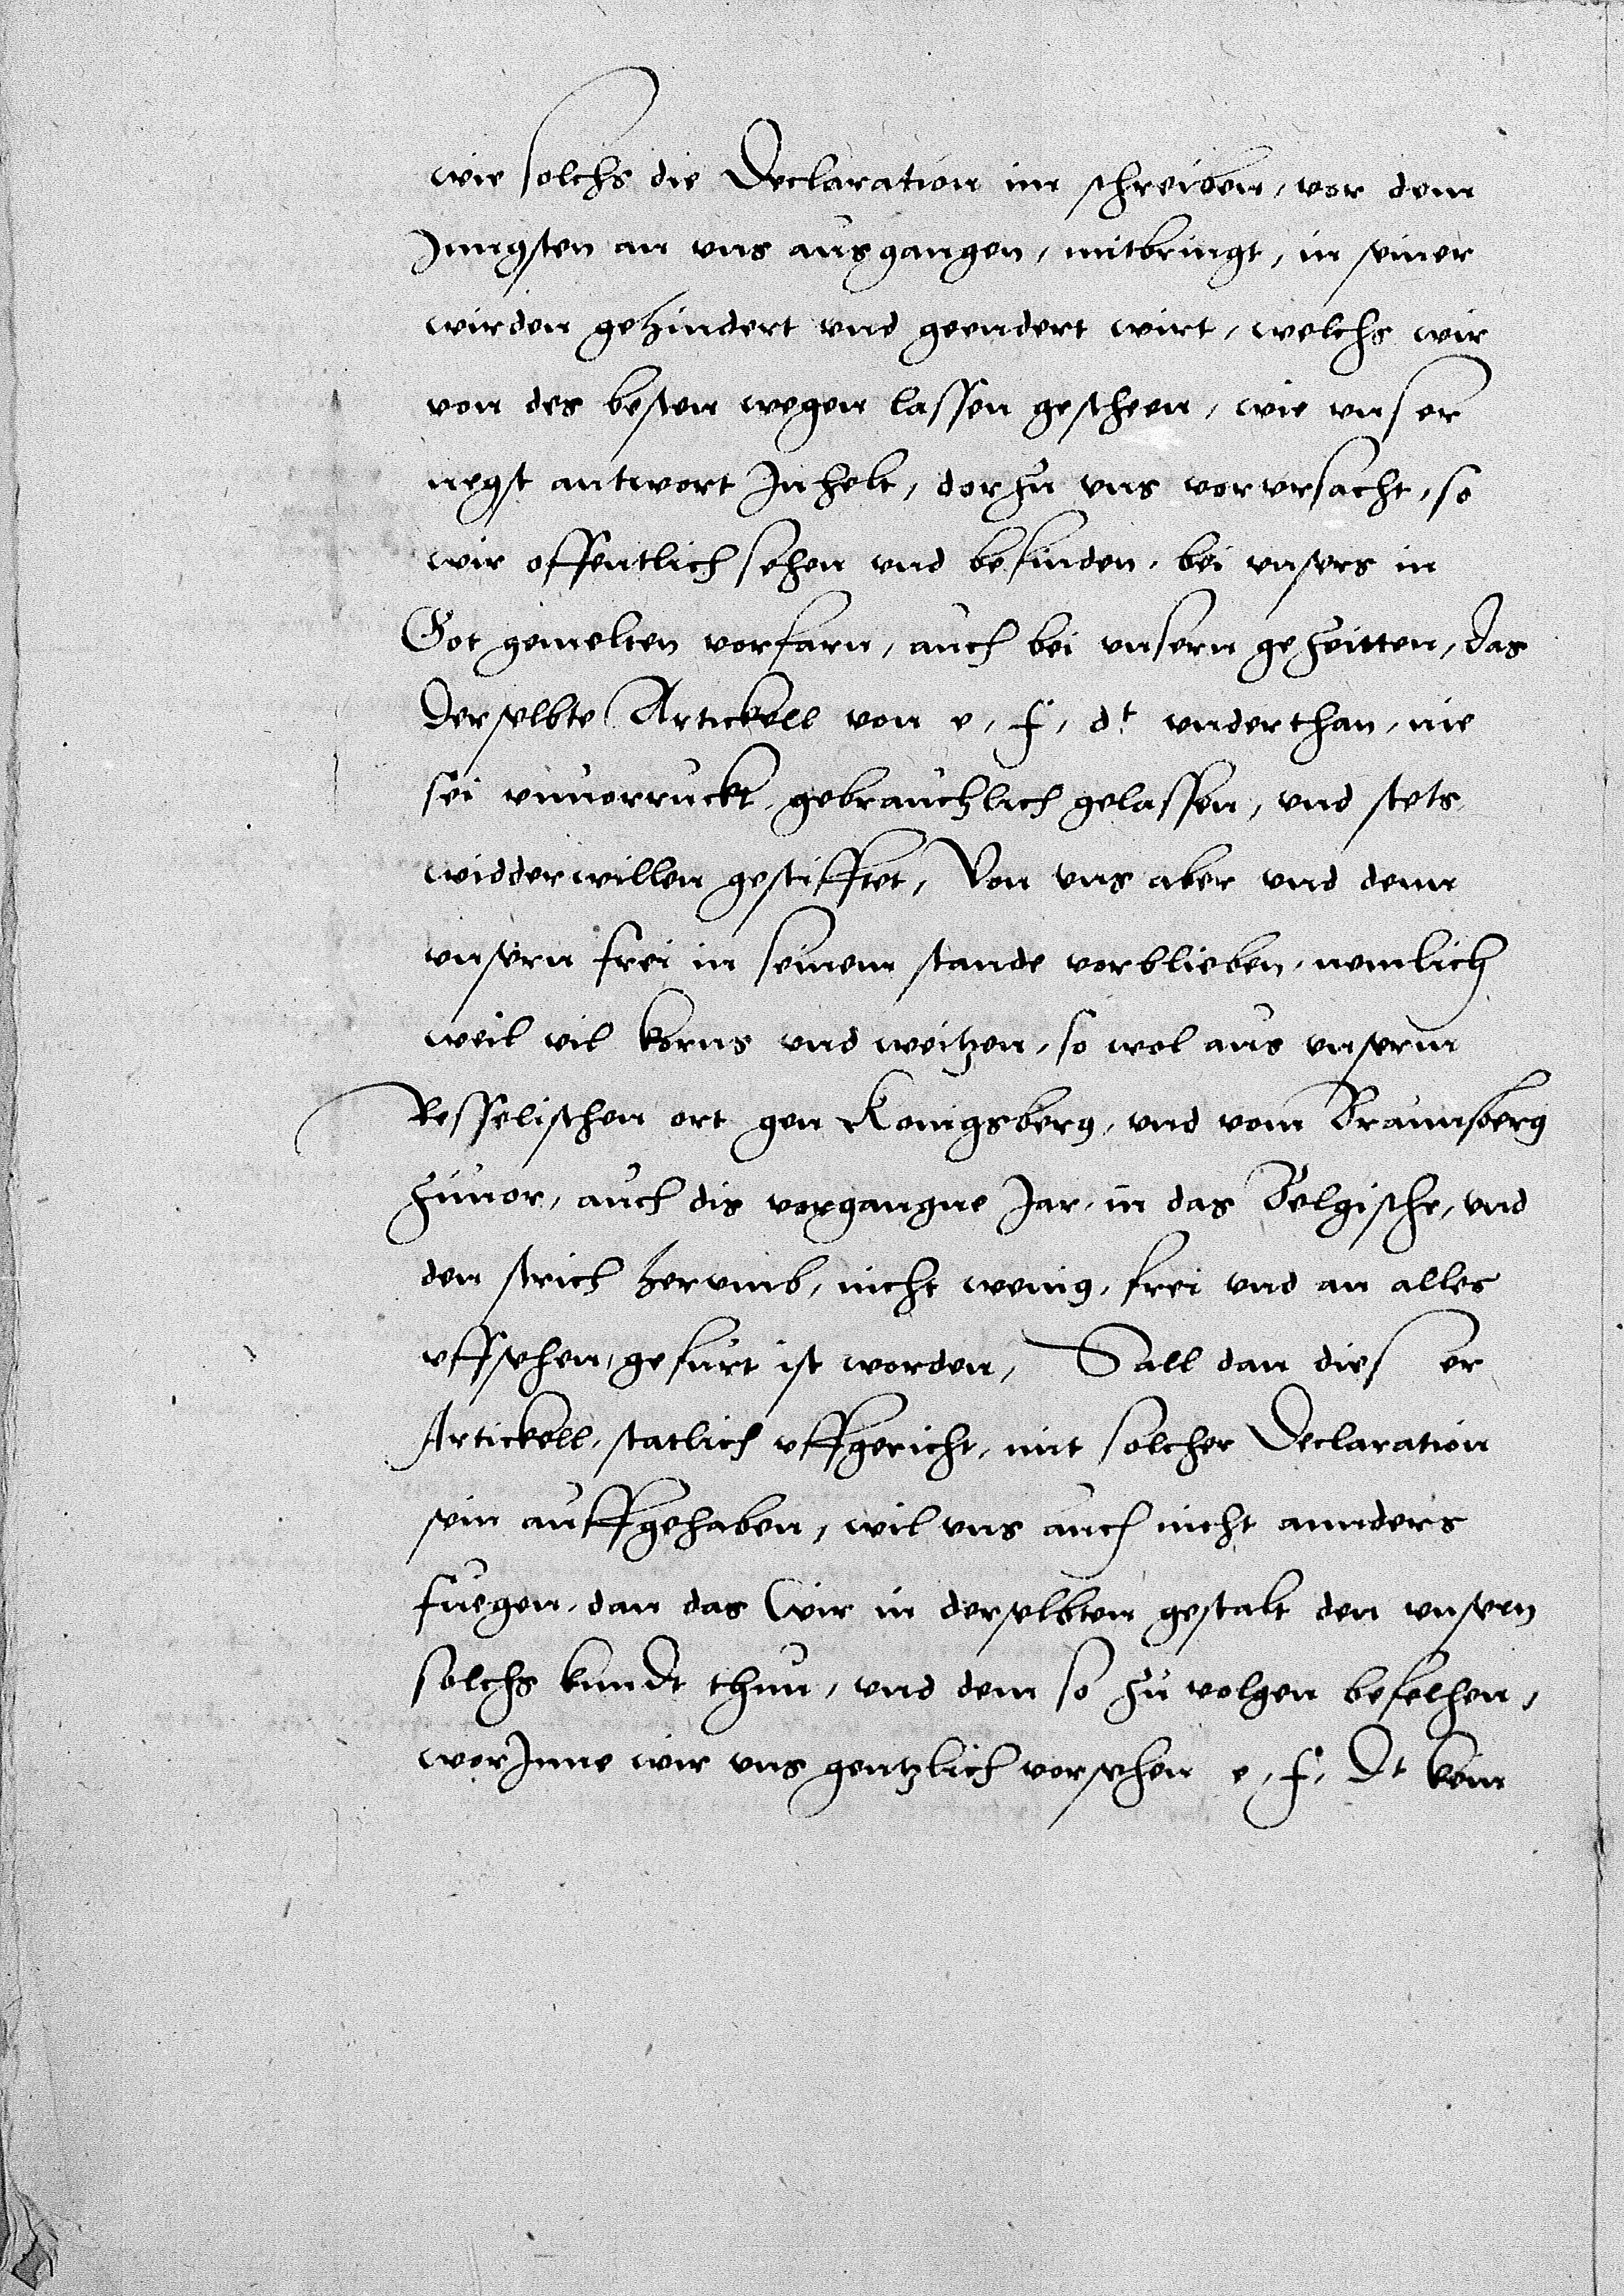 wie solchs die Declaration im schreiben, vor dem
Jungsten an vns ausgangen, mitbringt, in seiner
wirden gehindert vnd geendert wirt, welchs wir
von des besten wegen lassen gescheen, wie vnser
negst antwort Jnhelt, dorzu vns vorursacht, so
wir offentlich sehen vnd befinden, bei vnsers in
Got gemelten vorfarn, auch bei vnsern gezeitten, das
derselbte Artickell von e, f, dt vnderthan, nie
sei vnuorruckt, gebrauchlich gelassen, vnd stets
widderwillen gestifftet, Von vns aber vnd denn
vnsern frei in seinem stande vorblieben, nemlich
weil vil korns vnd weitzen, so wol aus vnserm
Resselischen ort gen Konigsberg, vnd vom Braunsberg
zuuor, auch dis vorgangne Jar, in das Belgische, vnd
den strich herumb, nicht wenig, frei vnd an alles
vffsehen, gefurt ist worden, Sall dan dieser
Artickell, statlich vffgericht, mit solcher Declaration
sein auffgehaben, wil vns auch nicht annders
fuegen, dan das Wir in derselbten gestalt den vnsern
solchs kundt thun, vnd dem so zu volgen befelhen,
worJnne wir vns gentzlich vorsehen e, f, Dt kein